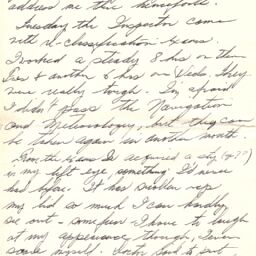 address me this henceforth.
Tuesday the Inspector came
with re-classification exams.
I worked a steady 8 hrs on them
Tues & another 6 hrs on Weds. They
were really tough. I'm afraid
I didn't pass the Navigation
and Meteorology, but they can
be taken again in another month.
From the exams I acquired a sty
in my left eye, something I'd never
had before. It has swollen up
my lid so much I can hardly
see out - some fun - I have to laugh
at my appearance though, I even
scare myself. Doctor said to put